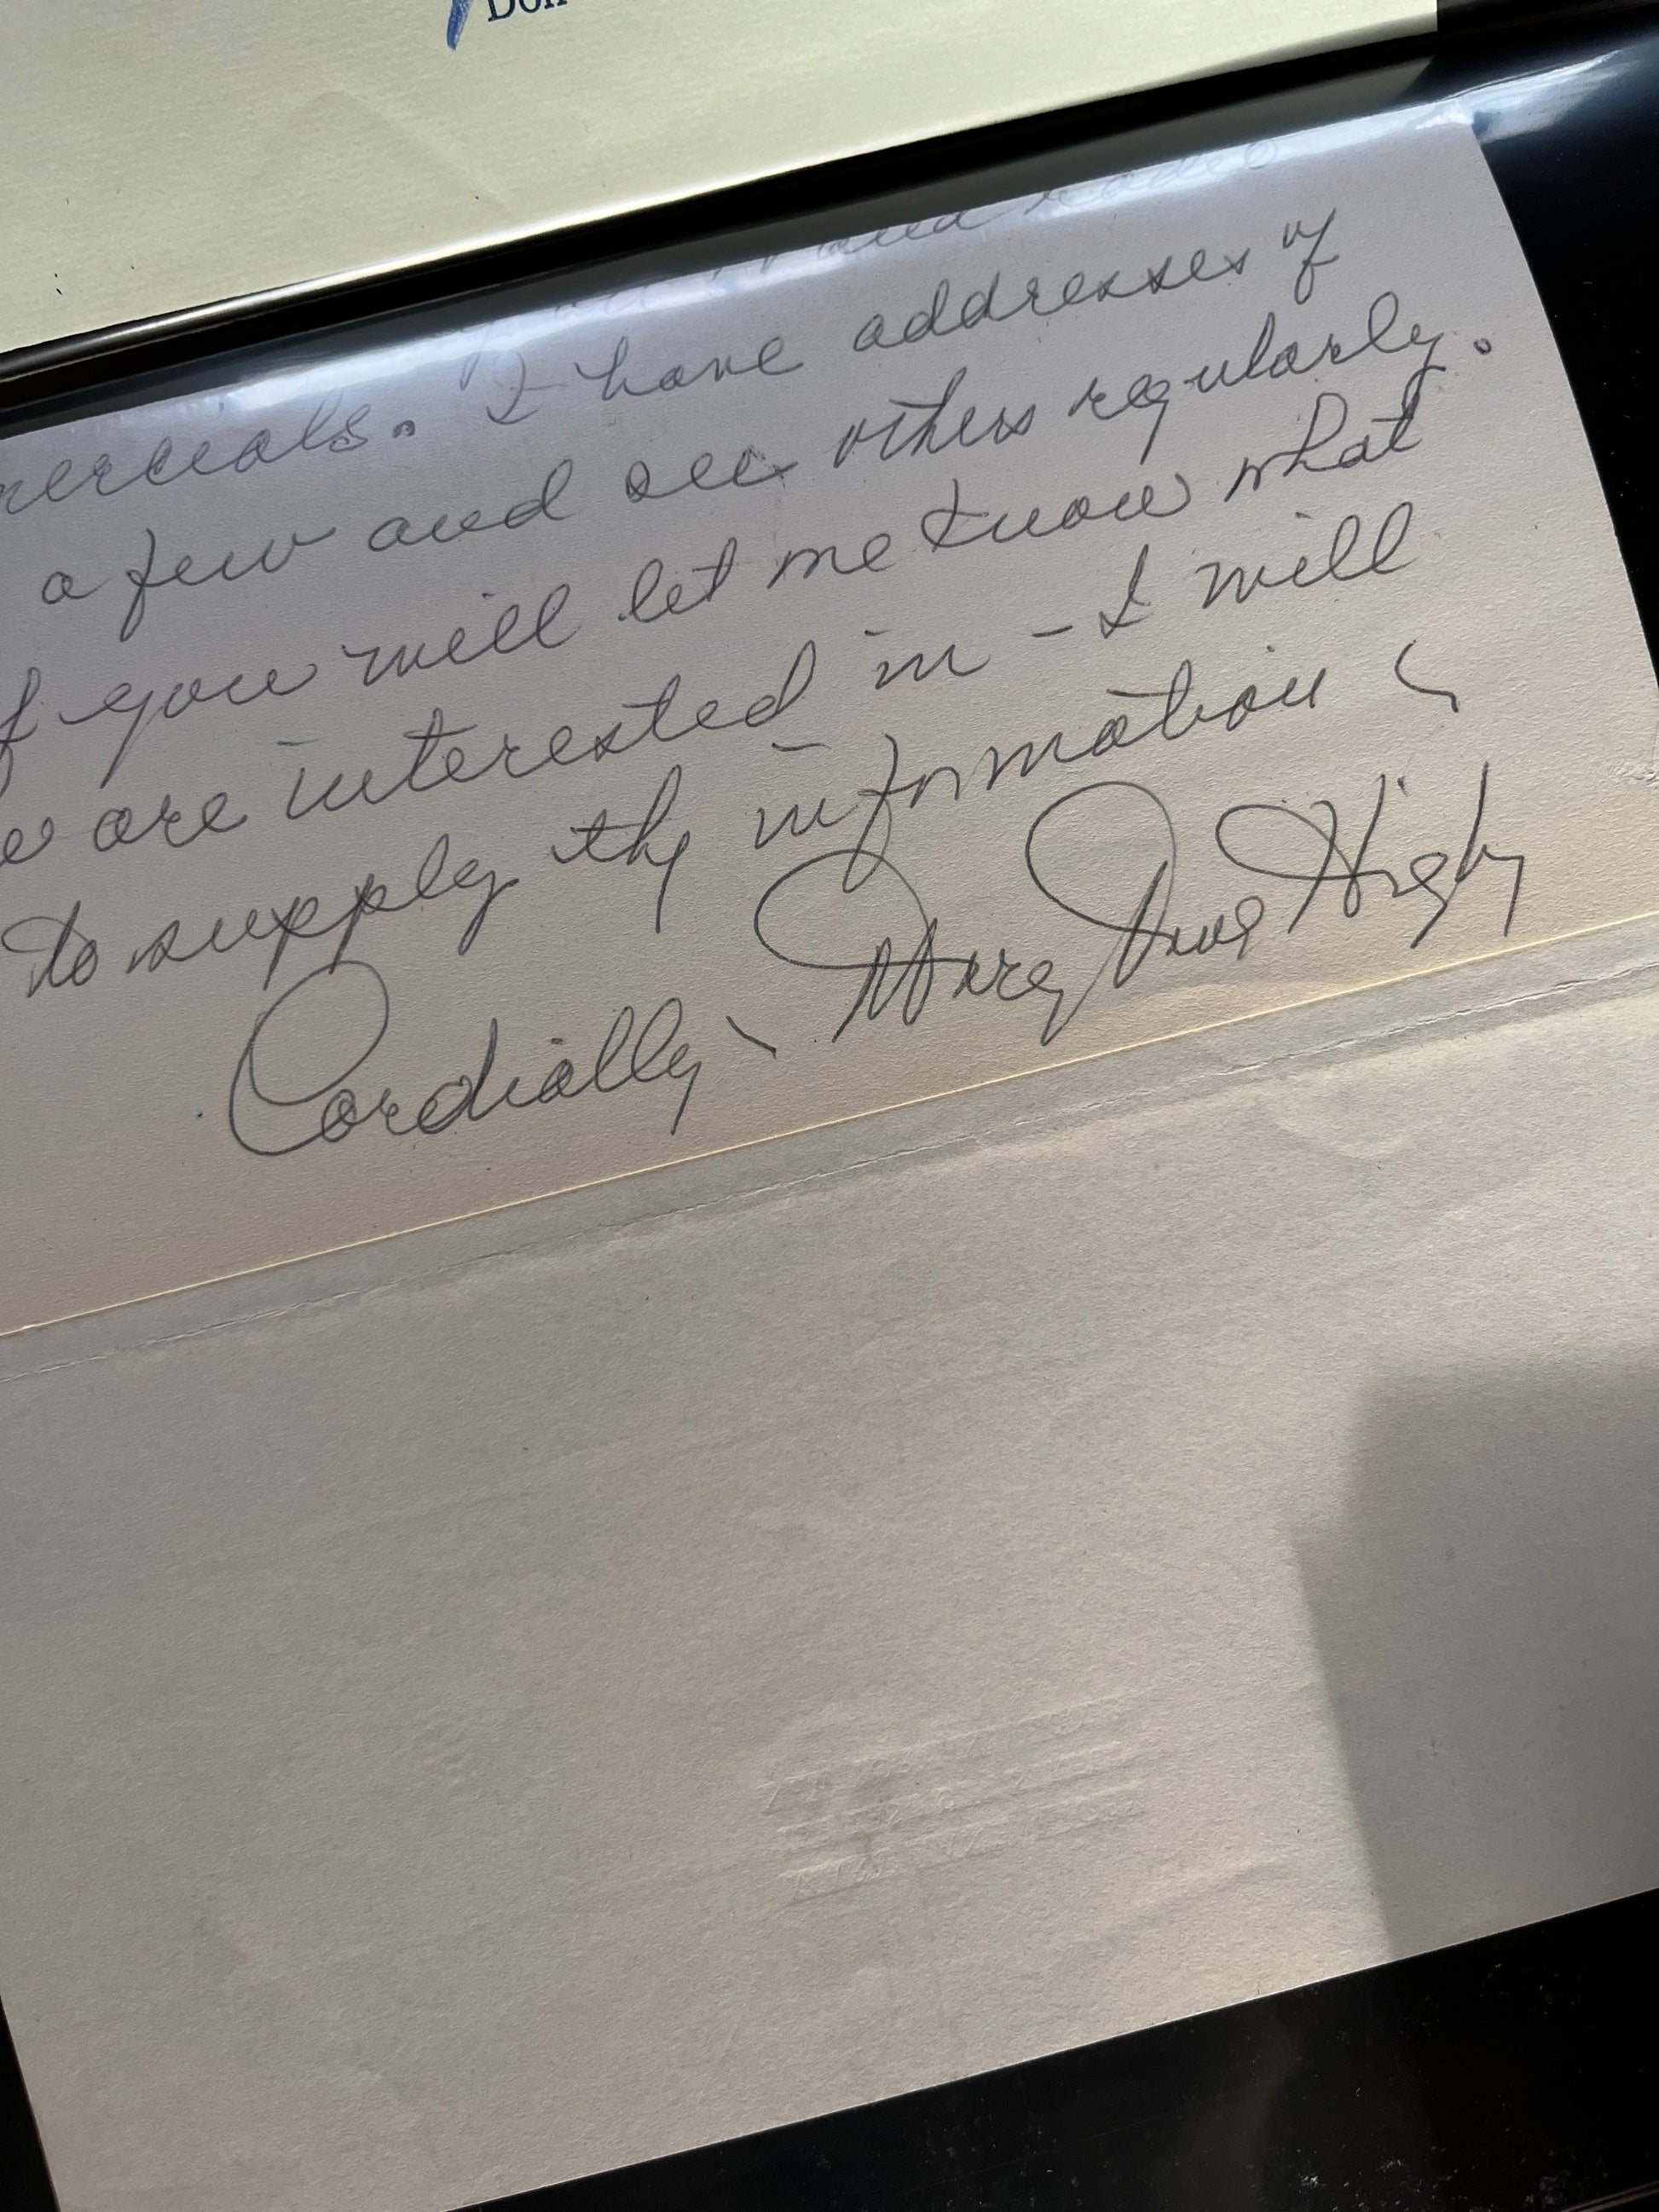 Don
and radio
mercials. I have addresses of
a few and see others regularly.
If you will let me know what
are interested in - I will
to supply the information
Cordially, Mary Jane Higby